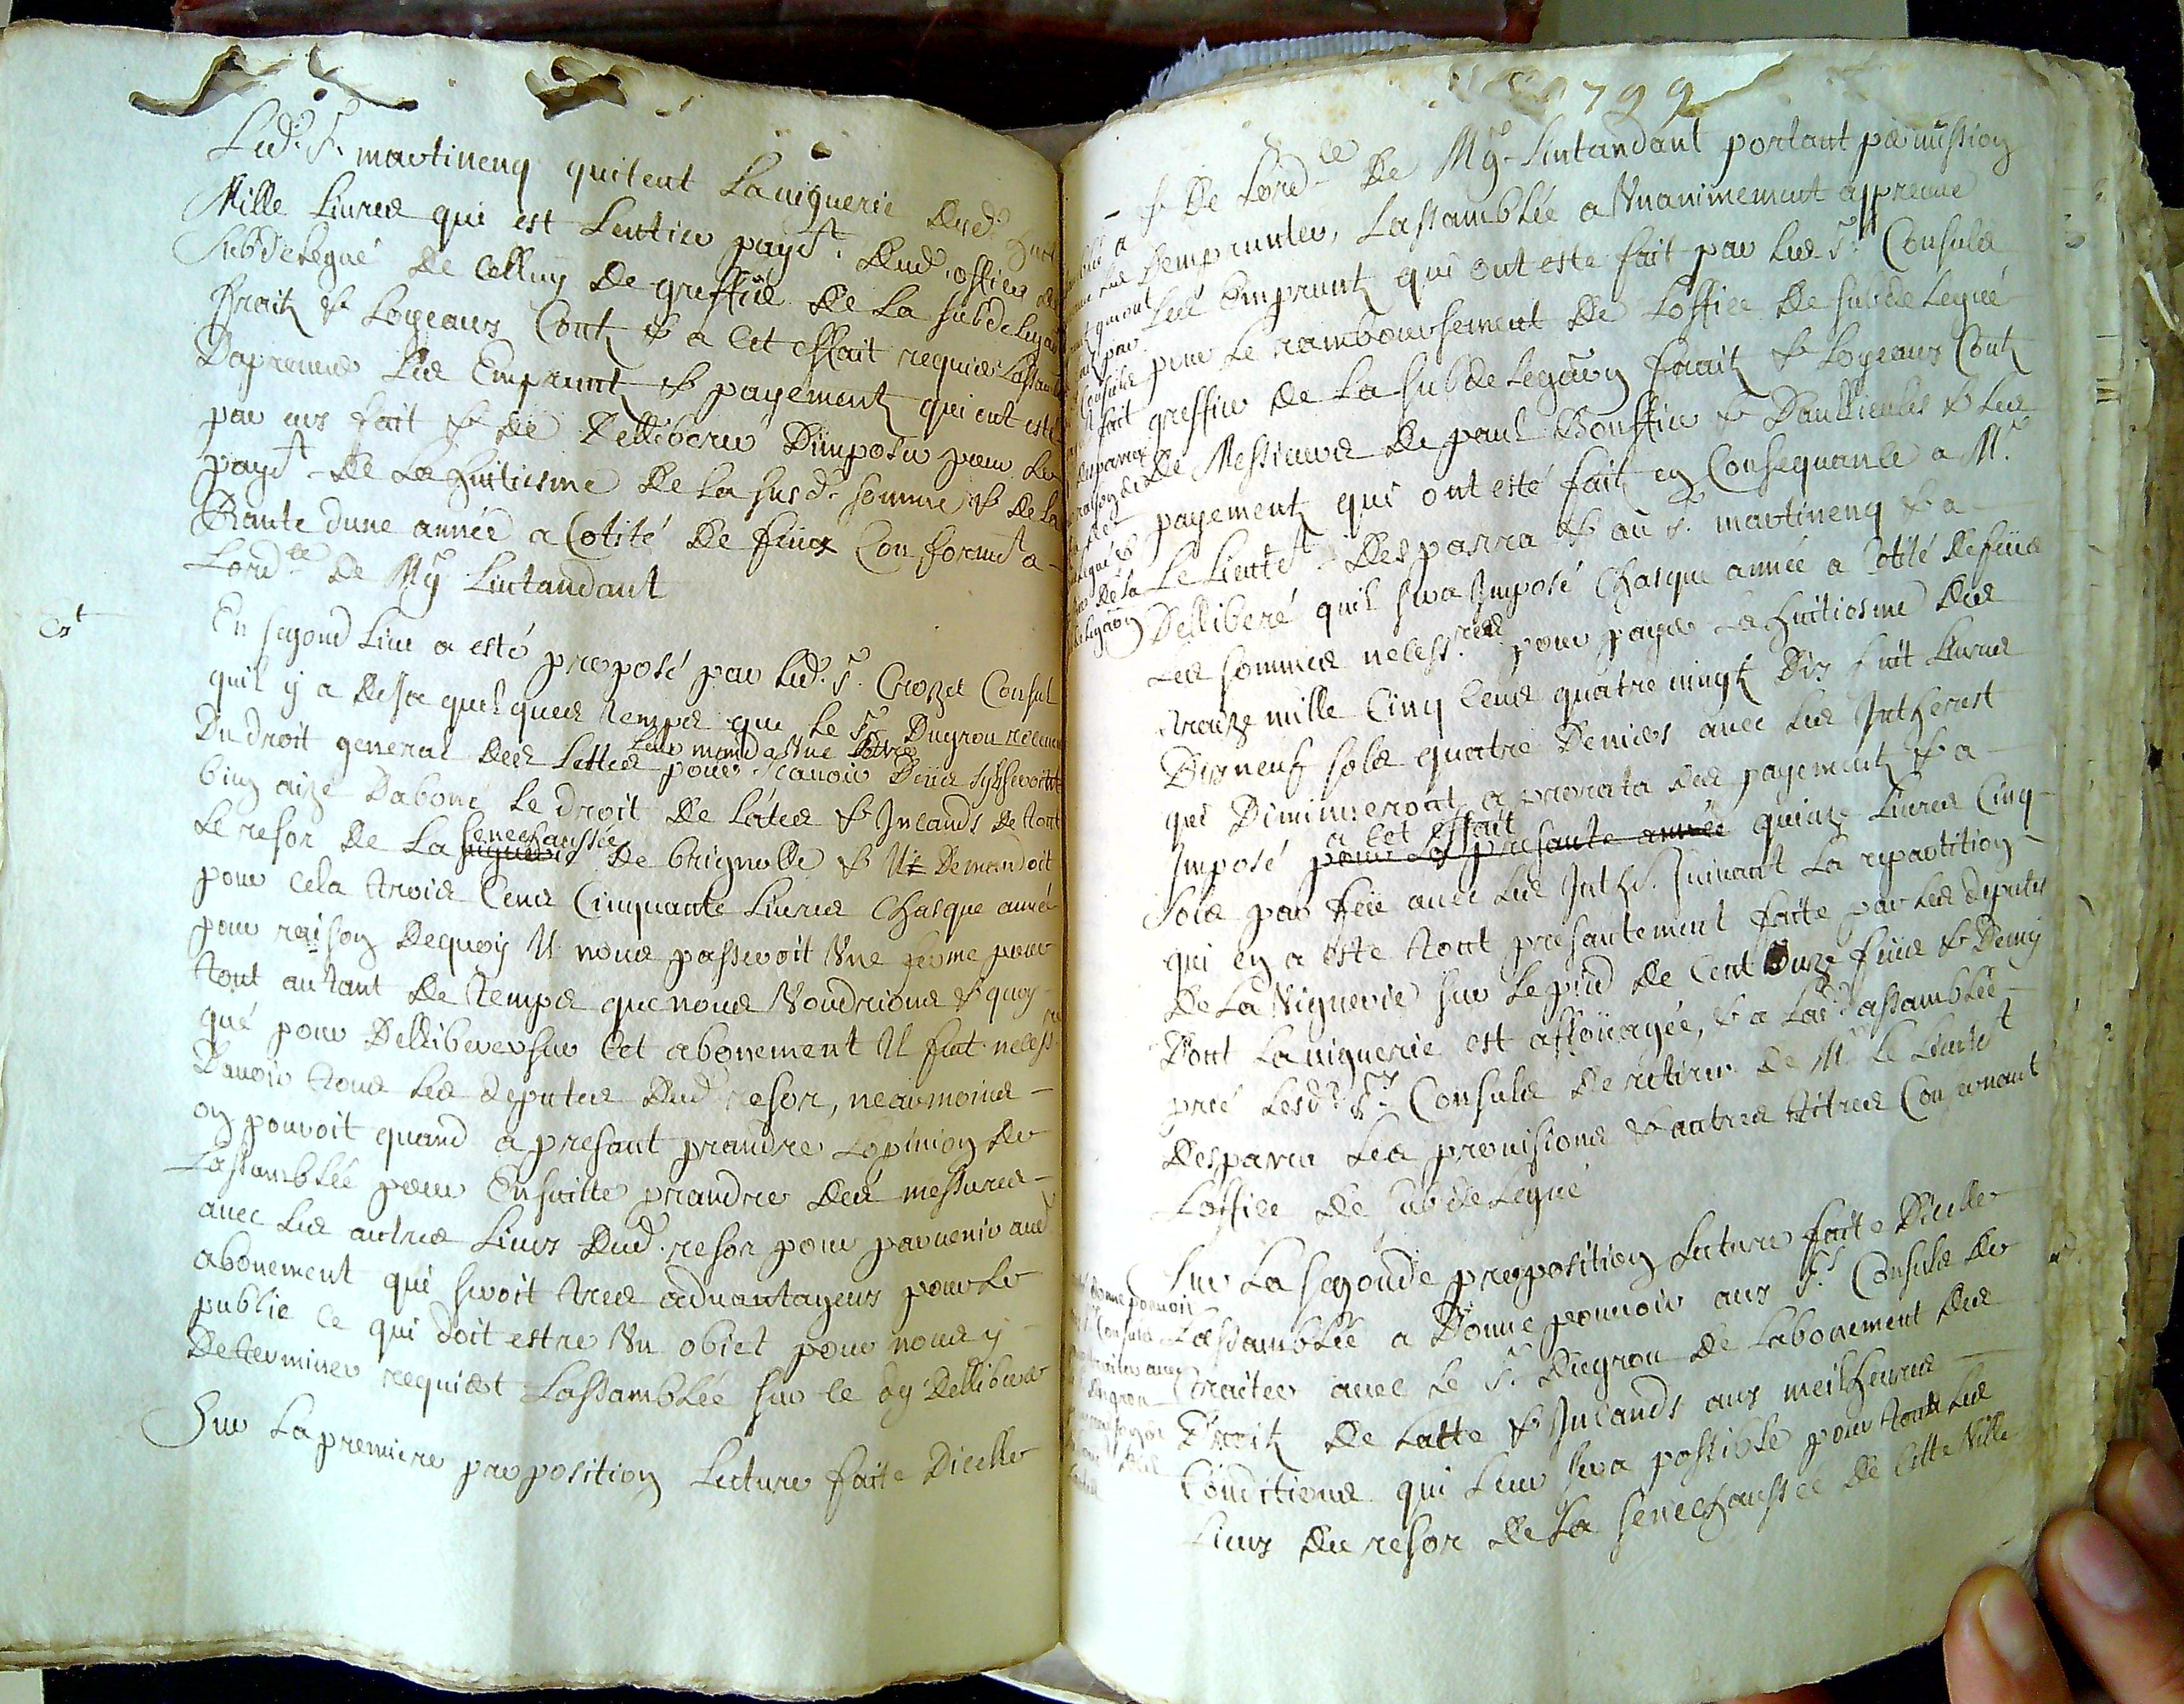 Led. Sr. martineng quitent La viguerie dud. huit
Mille Livres qui est Lentier payet. dud. office de
subdelegué de Celluy de greffier de La subdelegaon
fraitz & Loyeaux Coutz & a Cet effait requier Lassamblee
Daprouver Les Emprunt & payementz qui ont esté
par eux fait & de Delliberer Dimposer pour Le
payet. de La huitiesme de La susd. somme & de La
Rante dune année a Cotité de feux Conformet a
Lordce de Mgr Lintandant
En segond Lieu a esté proposé par Led. Sr. Crozet Consul
quil y a desja quelques temps que le Sr. Dugrou receveur
Du droit general des Lattes leur manda Une Lettre
pour scavoir Deux sy seroint
bien aize Daboné le droit de Lates & Incands de tout
Le resor de La viguerie senechaussée de brignolle & Il demandoit
pour cela trois Cens Cinquante Livres Chasque année
pour raison dequoy Il nous passeroit Une ferme pour
tout autant de temps que nous Voudrions & quoy
qué pour Delliberer sur Cet abonement Il fut necessre
Davoir tous Les deputes dud. resor, neaumoins
on pouvoit quand a presant prandre Lopinion de
Lassamblée pour Ensuitte prandre des messures
avec Les autres Lieux dud. resor pour parvenir aud.
abonement qui seroit tres advantageux pour Le
public Ce qui doit estre Un obiet pour nous y
determiner requiert Lassamblée sur Ce dy Delliberer
Sur La premiere proposition Lecture faite Dicelle
799
& de Lordce de Mgr Lintandant portant permission
Demprunter, Lassamblée a Unanimement appreuvé
Les Empruntz qui ont esté fait par Les Srs. Consuls
pour Le rambourssement de Loffice de subdelegué
greffier de La subdelegaon fraitz & Loyeaux Coutz
de Messieurs de paul Bonffier & Daullieules & Les
payementz qui ont esté faitz en Consequance a Mr.
Le Lieutet. Desparra & au Sr. martineng & a
Delliberé quil sera Imposé Chasque année a Cotité de feux
Les sommes necessres pour payer La huitiesme des
traize mille Cinq Cens quatre vingtz Dix huit Livres
Dix neuf sols quatre Deniers avec Les Intherest
qui Diminueront a prorata des payementz & a
Imposé pour Cest presante année a Cet Effait quinze Livres Cinq
sols par feu avec Les Inths. suivant La repartition
qui en a esté tout presantement faite par Les deputes
de La Viguerie sur Le pied de Cent Onze feux & Demy
Dont La viguerie est affoüagée, & a Lad. assamblée
prié Lesds. Srs. Consuls de retirer de Mr Le Lieutet
Desparra Les provisions & autres titres Concernant
Loffice de subdelegué
Sur La segonde proposition Lecture faite Dicelle
Lassamblée a Donné pouvoir aux Srs. Consuls de
traiter avec Le Sr. dugrou de Labonement des
Droitz de Latte & Incands aux meilheures
Conditions qui Leur sera possible pour tous Les
Lieux du resor de La senechaussée de Cette Ville